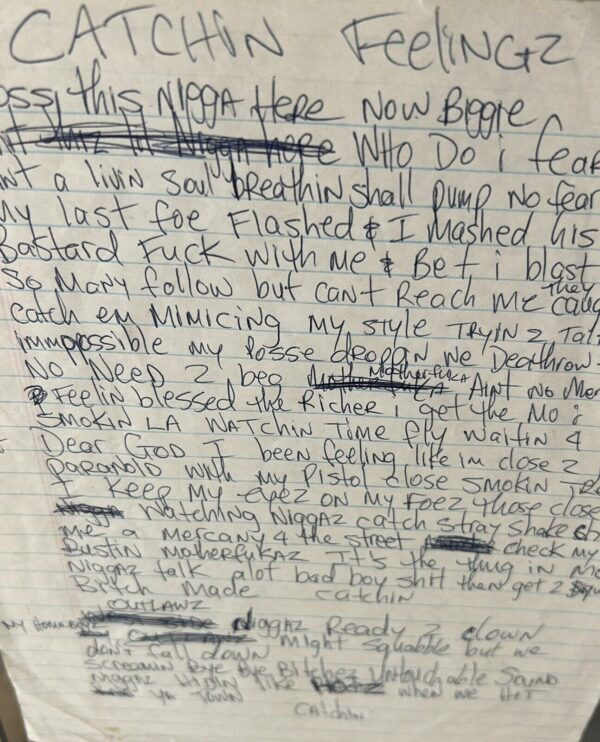 CATCHiN FeeliNGZ
this Nigga Here Now Biggie
WHO DO i fear
a livin Soul breathin shall pump No fear
My last foe Flashed & I Mashed his
Bastard Fuck With me & Bet i blast
So Many follow but can't Reach me they
catch em MiMiCiNG My style TRyiN 2
immpossible my posse droppin we Deathrow
No Need 2 beg MotherfuKA Aint No
Feelin blessed the Richer i get the Mo
SMOKiN LA WATCHiN Time fly Waitin 4
Dear God I been feeling like im close 2
paranoid with my Pistol close Smokin
I Keep My eyez on my Foez those close
Watching Niggaz catch stray
me a Mercany 4 the street check my
Bustin Motherfukaz It's the thug in me
Niggaz talk alot bad boy shit then get 2
Bitch Made catchin
OUTLAWZ
My Homeboyz Niggaz Ready 2 clown
Might Squabble but we
don't fall down
Screamin Bye Bye Bitchez Untouchable Sound
Niggaz Ridin like when we Hit
Ya Town
CAtchin